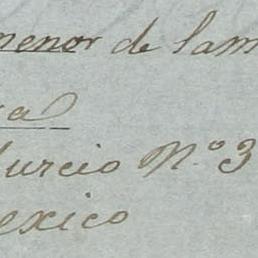 menor de la
ca
Murcio Nº 3
Mexico